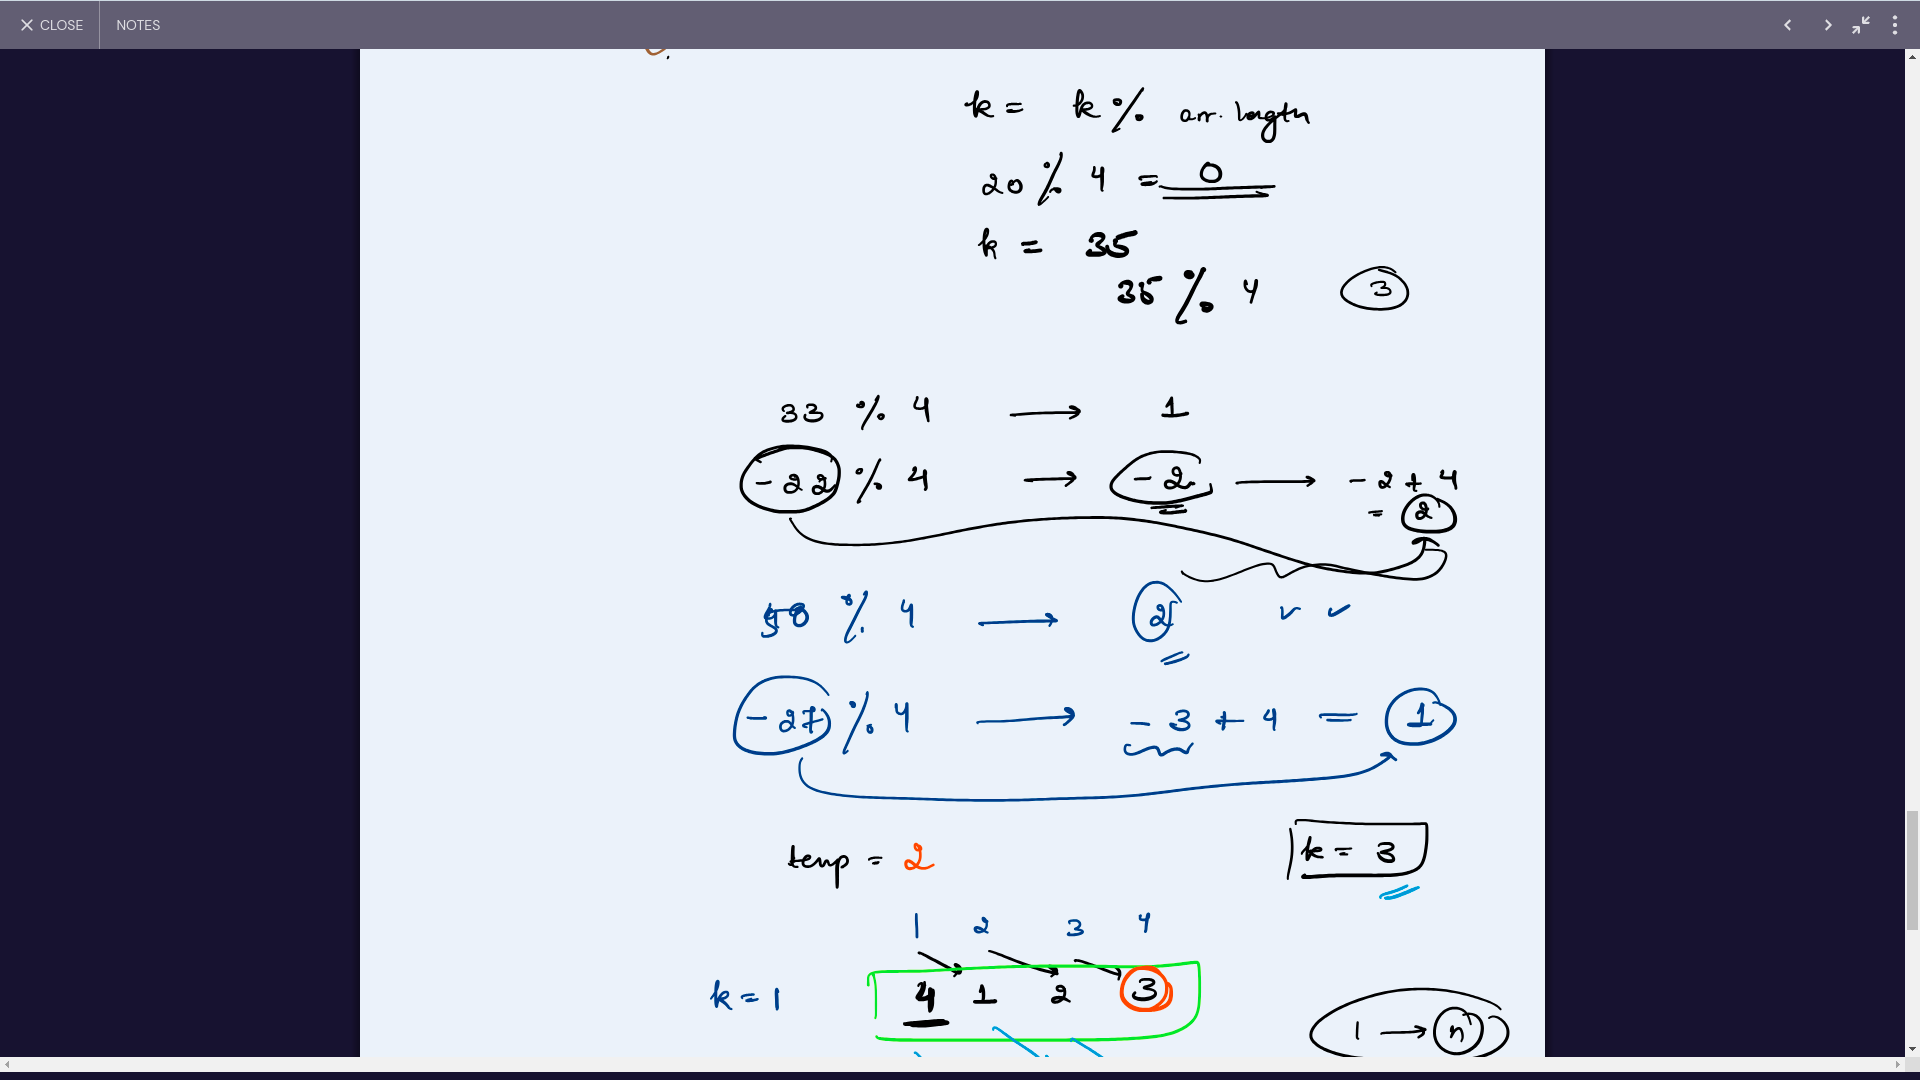 CLOSE NOTES
k = k % arr.length
20 % 4 = 0
k = 35
35 % 4 3
33 % 4 → 1
-22 % 4 → -2 → -2 + 4
= 2
% 4 → 2
-27 % 4 → -3 + 4 = 1
temp = 2
k = 3
1 2 3 4
k = 1 4 1 2 3
1 → n